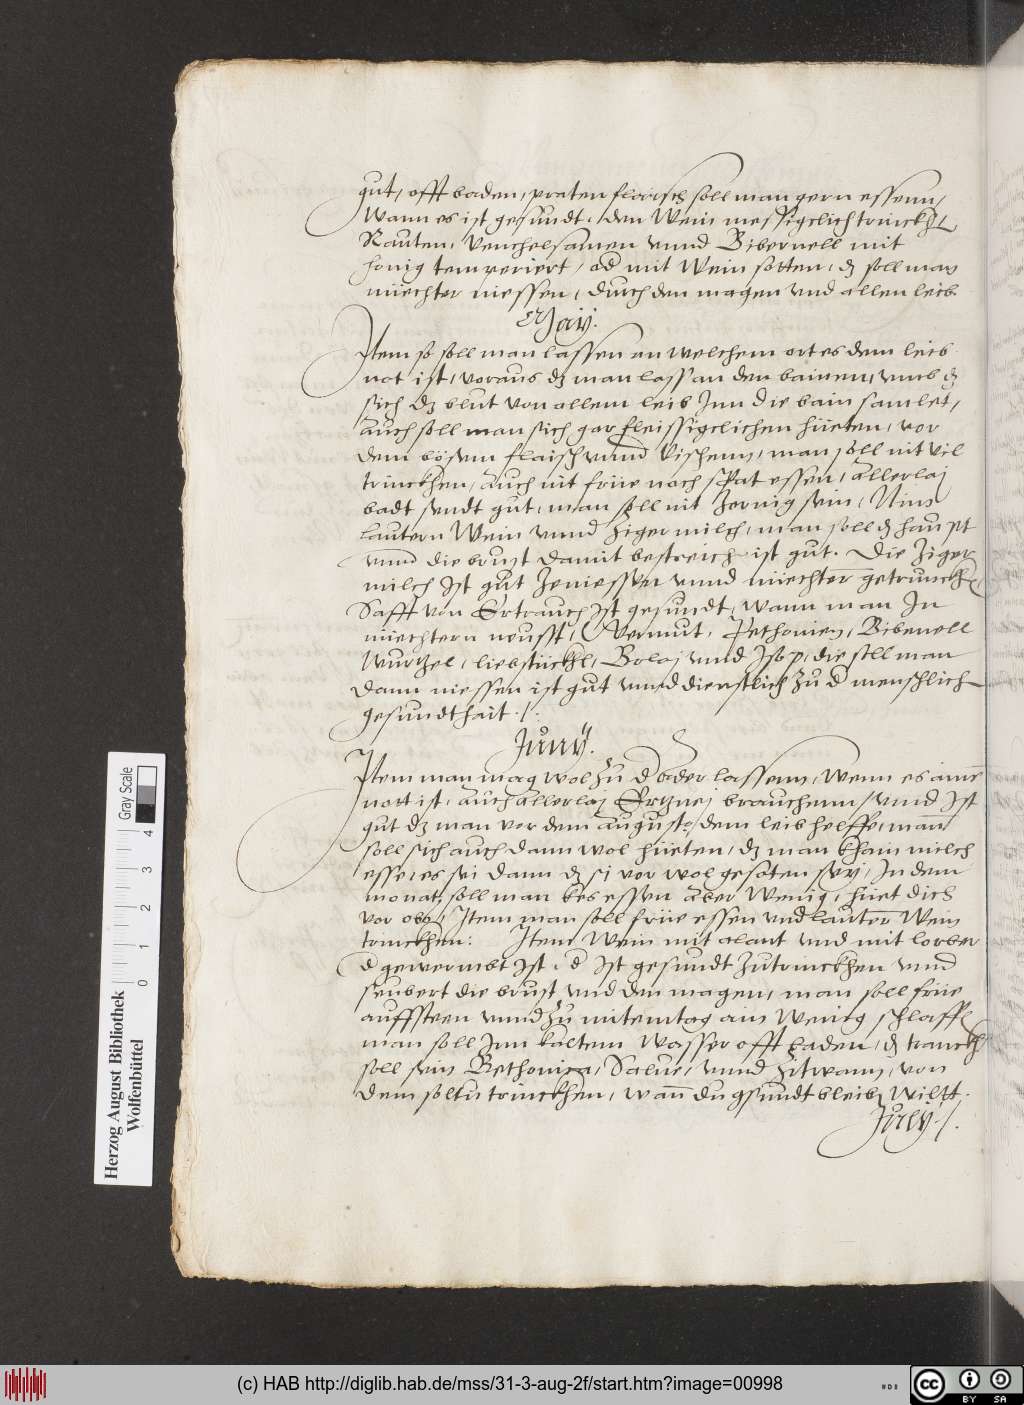 gut, offt baden, praten flaisch soll man gern essenn,
Wann es ist gesundt, den Wein messigclich trinckh
Rauten, Venchelsamen vnnd Bibernell mit
honig temperiert, od mit Wein sotten, dz soll man
nüechter niessen, durch den magen vnd allen leib.
May.
Item so soll man lassen an welchem ort es dem leib
not ist, voraus dz man lass an den bainen, vmb dz
sich dz blut von allem leib Inn die bain samlet,
auch soll man sich gar fleissigclichen hüeten, vor
dem bösem flaisch vnnd vischenn, man soll nit vil
trinckhen, auch nit früe noch spat essen, allerlaj
badt sendt gut, man soll nit zornig sein, Nim
lautern Wein vnnd ziger milch, man soll dz haupt
vnnd die brust damit bestreich ist gut. Die ziger
milch Ist gut zeniessen vnnd nüechter getrunckh
Safft von Ertrauch Ist gesundt, wann man In
nüechtern neusst, Wermut, Pethonien, Bibenell
Wurtzel, liebstückhl, Bolaj vnnd Isop, die soll man
dann niessen ist gut vnnd dienstlich zu d menschlich
gesundthait.
Juny.
Item man mag wol zu d ader lassenn, Wenn es aim
nott ist, auch allerlaj Ertznej brauchenn, vnnd Ist
gut dz man vor dem augusto dem leib helffe, man
soll sich auch dann wol hüeten, dz man kham milch
esse, es sei dann dz si vor wol gesoten sey, In dem
monat, soll man kes essen aber Wenig, hüet dich
vor obs, Item man soll früe essen vnd lauter Wein
trinckhen. Item Wein mit alant vnd mit lorber
d gewermbt Ist, d Ist gesundt zutrinckhen vnnd
seubert die brust vnd den magen, man soll früe
auffsteen vnnd zu mitemtag ain Wenig schlaffen
man soll Inn kaltem Wasser offt baden, dz tranckh
soll sein Bethonica, Salue, vnnd zitwann, von
dem soltu trinckhen, wann du gsundt bleiben wiltt.
July.
Herzog August Bibliothek
Wolfenbüttel
Gray Scale
0 1 2 3 4
(c) HAB http://diglib.hab.de/mss/31-3-aug-2f/start.htm?image=00998
cc BY SA